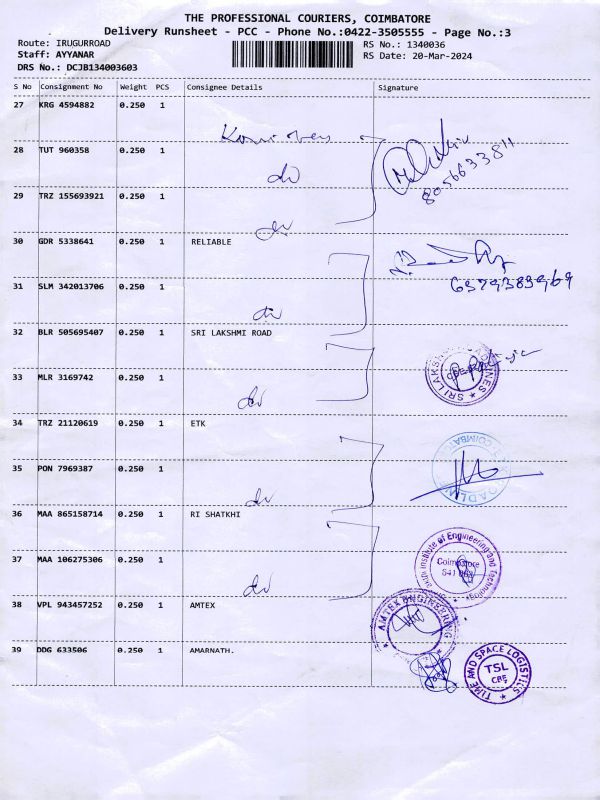 THE PROFESSIONAL COURIERS, COIMBATORE
Delivery Runsheet - PCC - Phone No.:0422-3505555 - Page No.:3
Route: IRUGURROAD
RS No.: 1340036
Staff: AYYANAR
RS Date: 20-Mar-2024
DRS No.: DCJB134003603
S No Consignment No Weight PCS Consignee Details Signature
27 KRG 4594882 0.250 1
28 TUT 960358 0.250 1
8056633811
29 TRZ 155693921 0.250 1
30 GDR 5338641 0.250 1 RELIABLE
6379389969
31 SLM 342013706 0.250 1
32 BLR 505695407 0.250 1 SRI LAKSHMI ROAD
33 MLR 3169742 0.250 1
34 TRZ 21120619 0.250 1 ETK
35 PON 7969387 0.250 1
36 MAA 865158714 0.250 1 RI SHATKHI
37 MAA 106275306 0.250 1
Institute of Engineering and Technology
Coimbatore
38 VPL 943457252 0.250 1 AMTEX
AMTEK ENGINEERING
39 DDG 633506 0.250 1 AMARNATH.
TIME AND SPACE LOGISTICS
TSL
CBE